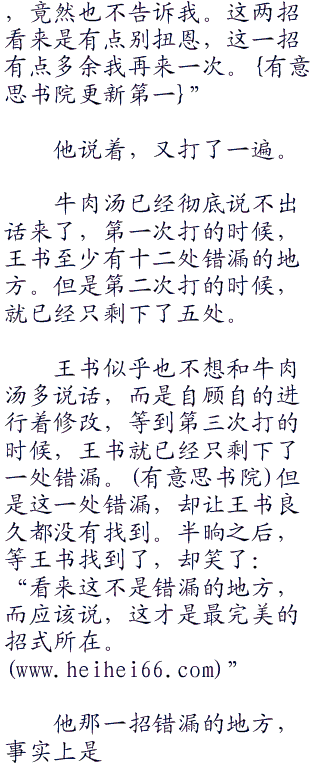 ，竟然也不告诉我。这两招
看来是有点别扭恩，这一招
有点多余我再来一次。{有意
思书院更新第一}”
他说着，又打了一遍。
牛肉汤已经彻底说不出
话来了，第一次打的时候，
王书至少有十二处错漏的地
方。但是第二次打的时候，
就已经只剩下了五处。
王书似乎也不想和牛肉
汤多说话，而是自顾自的进
行着修改，等到第三次打的
时候，王书就已经只剩下了
一处错漏。(有意思书院)但
是这一处错漏，却让王书良
久都没有找到。半晌之后，
等王书找到了，却笑了：
“看来这不是错漏的地方，
而应该说，这才是最完美的
招式所在。
(www.heihei66.com)”
他那一招错漏的地方，
事实上是